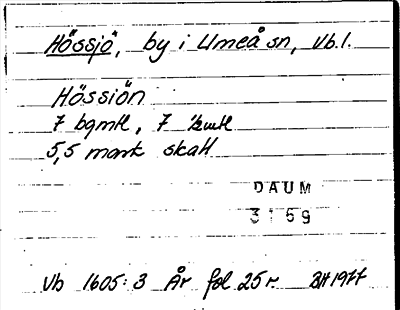 Hössjö, by i Umeå sn, Vb.l.
Hössiön
7 bgmtl, 7 1/2mtl
5,5 mark skatt
DAUM
3159
Vb 1605:3 År fol 25r. BH 1977